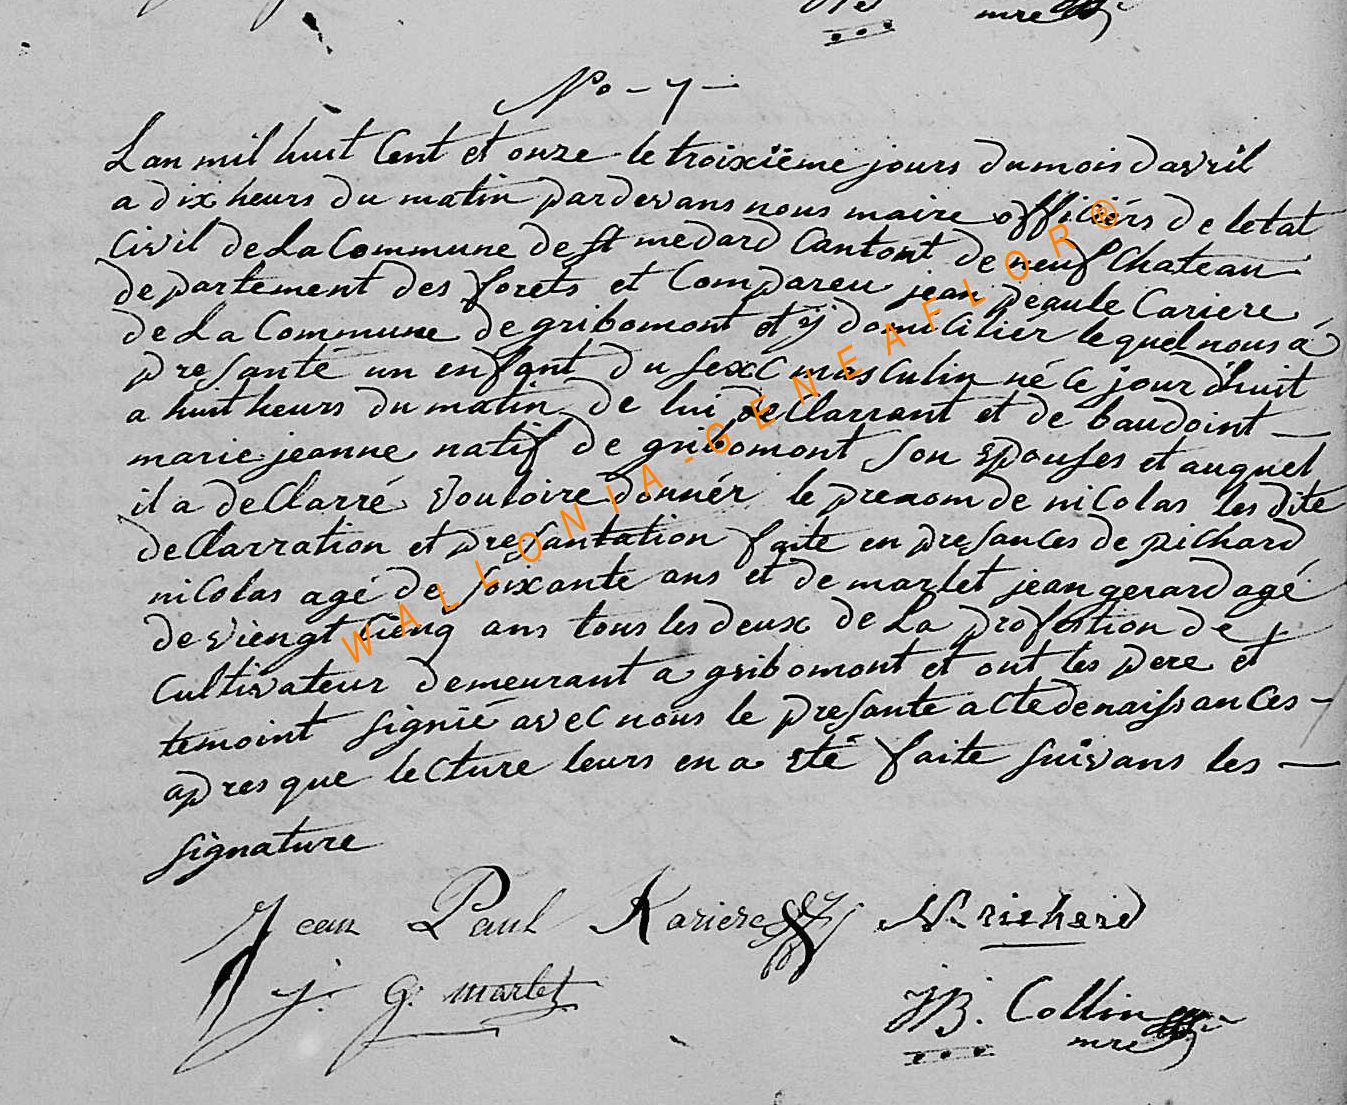 mre
No - 7 -
Lan mil huit Cent et onze le troixiëme jours du mois davril
a dix heurs du matin pardevans nous maire officiérs de letat
Civil de La Commune de St medard Cantont de neufChateau
departement des forets et Compareu jean peaule Cariere
de La Commune de gribomont et ÿ domicilier lequel nous á
presanté un enfant du sexe masculin né ce jour d'huit
a huit heurs du matin de lui declarrant et de baudoint —
marie jeanne natif de gribomont son epouses et auquel
il a declarré vouloire donnér le prenom de nicolas les dite
declarration et presantation faite en presances de richard
nicolas agé de soixante ans et de marlet jean gerard agé
de viengt cienq ans tous les deux de La profestion de
Cultivateur demeurant a gribomont et ont les pere et
temoint signié avec nous le presante acte de naissances -
apres que lecture leurs en a été faite suivans les —
signature
Jean Paul Kariere N. richard
j. G. marlet
JB. Collin
mre
WALLONIA-GENEAFLOR®